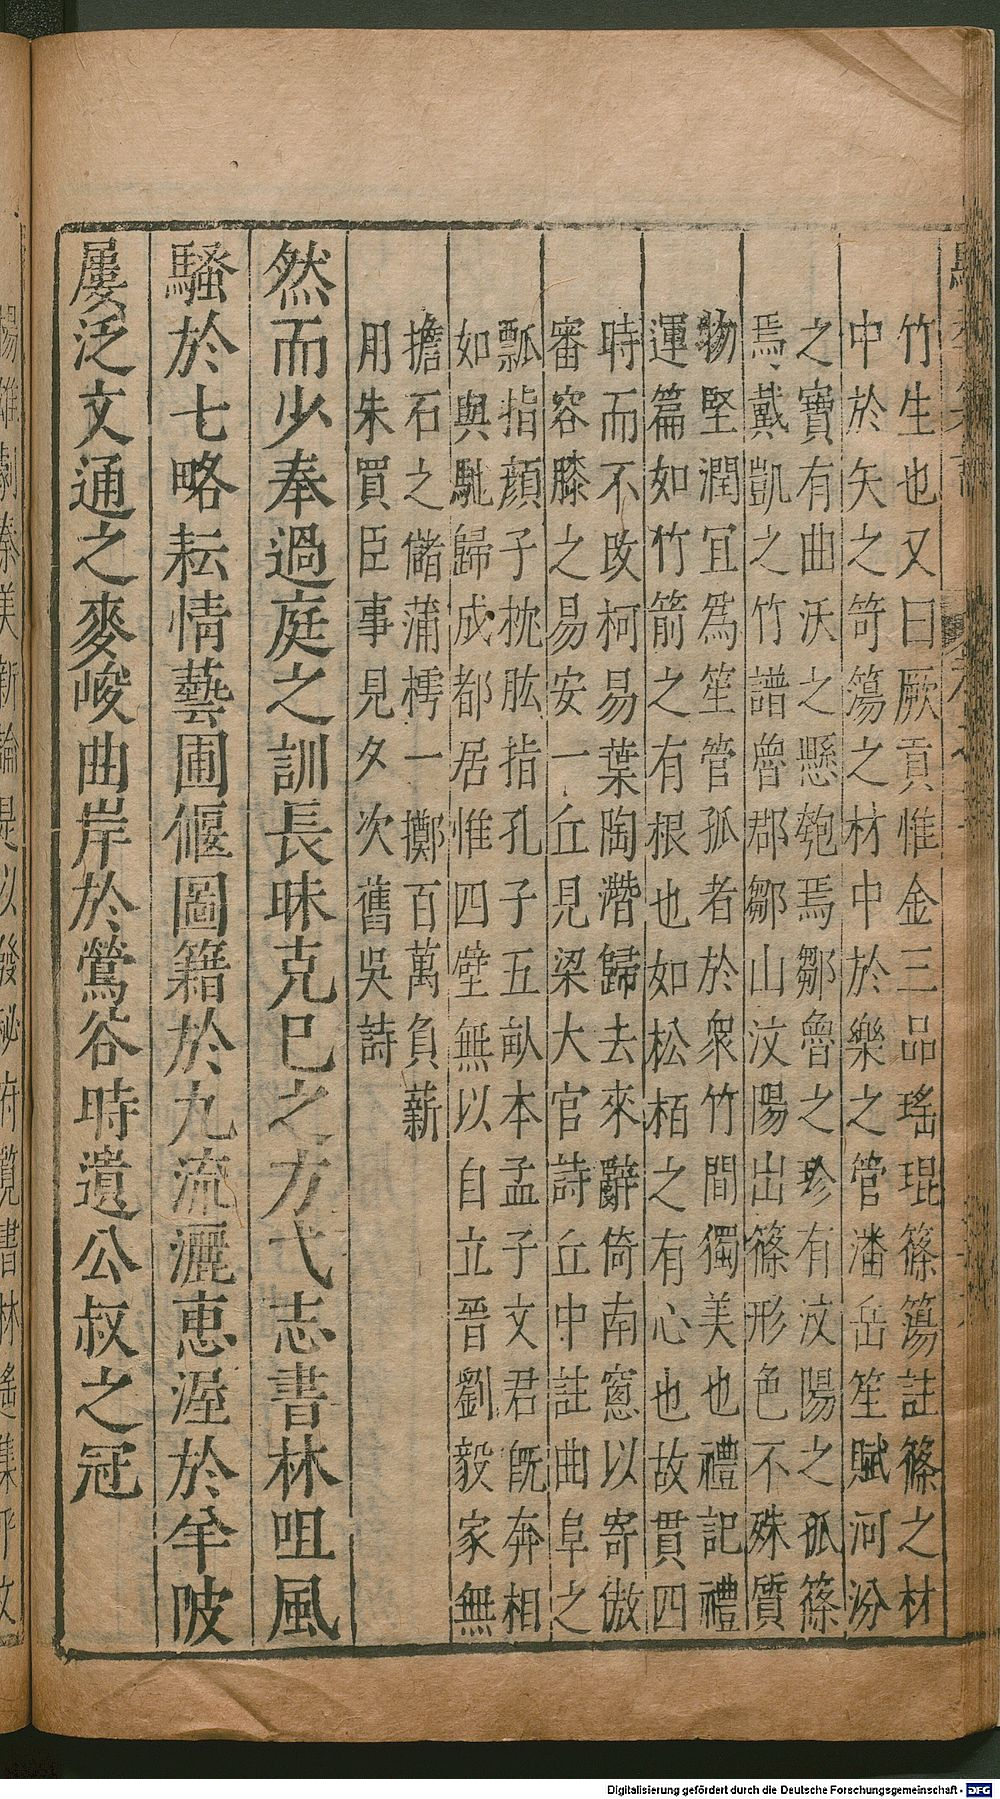 竹生也又曰厥貢惟金三品瑤琨篠簜註篠之材
中於矢之笴簜之材中於樂之管潘岳笙賦河汾
之寶有曲沃之懸匏焉鄒魯之珍有汶陽之孤篠
焉戴凱之竹譜魯郡鄒山汶陽出篠形色不殊質
物堅潤宜爲笙管孤者於衆竹間獨美也禮記禮
運篇如竹箭之有根也如松栢之有心也故貫四
時而不改柯易葉陶潛歸去來辭倚南窻以寄傲
審容膝之易安一丘見梁大官詩丘中註曲阜之
瓢指顔子枕肱指孔子五畝本孟子文君旣奔相
如與馳歸成都居惟四壁無以自立晉劉毅家無
擔石之儲蒲樗一擲百萬負薪
用朱買臣事見夕次舊吳詩
然而少奉過庭之訓長昧克巳之方弋志書林咀風
騷於七略耘情藝圃偃圖籍於九流灑惠渥於羊陂
屢泛文通之麥峻曲岸於鶯谷時遺公叔之冠
Digitalisierung gefördert durch die Deutsche Forschungsgemeinschaft - DFG